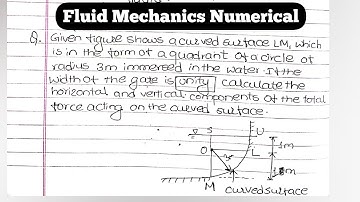 Fluid Mechanics Numerical
Q. Given figure shows a curved surface LM, which
is in the form of a quadrant of a circle of
radius 3m immersed in the water. If the
width of the gate is unity, calculate the
horizontal and vertical components of the total
force acting on the curved surface.
S U
1m
O L
3m
M
curved surface